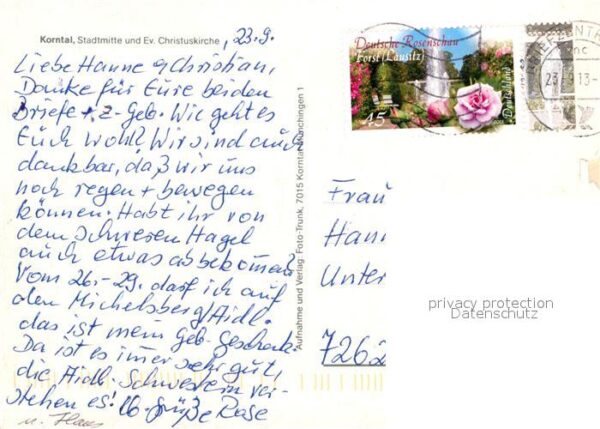 Korntal, Stadtmitte und Ev. Christuskirche
, 23.9.
Liebe Hanne & Christian,
Danke für Eure beiden
Briefe + z. Geb. Wie geht es
Euch wohl? Wir sind auch
dankbar, daß wir uns
noch regen + bewegen
können. Habt ihr von
dem schweren Hagel
auch etwas abbekommen
Vom 26.-29. darf ich auf
den Michelsberg/Aidl.
das ist mein Geb. Geschenk.
Da ist es imer sehr gut,
die Aidl. Schwestern ver-
stehen es! lb. Grüße Rose
u. Hans
Aufnahme und Verlag: Foto-Trunk, 7015 Korntal-Münchingen 1
Deutsche Rosenschau
Forst (Lausitz)
Deutschland
45
BRIEFZENTR
23.9.13-
Frau
Hann
Unter
7262
privacy protection
Datenschutz